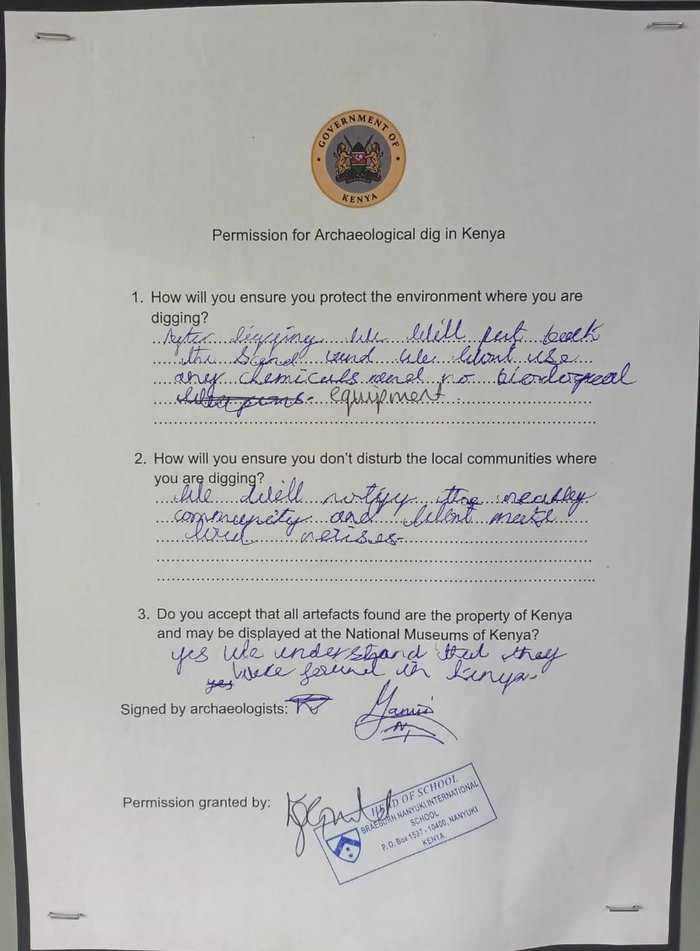 GOVERNMENT OF
KENYA
Permission for Archaeological dig in Kenya
1. How will you ensure you protect the environment where you are
digging?
After digging we will put back
the sand and we wont use
any chemicals and no biological
equipment
2. How will you ensure you don't disturb the local communities where
you are digging?
We will notify the nearby
community and wont make
loud
3. Do you accept that all artefacts found are the property of Kenya
and may be displayed at the National Museums of Kenya?
yes we understand that they
were found in kenya.
Signed by archaeologists:
Permission granted by:
HEAD OF SCHOOL
BRAEBURN NANYUKI INTERNATIONAL
SCHOOL
P. O. Box 1537 - 10400, NANYUKI
KENYA